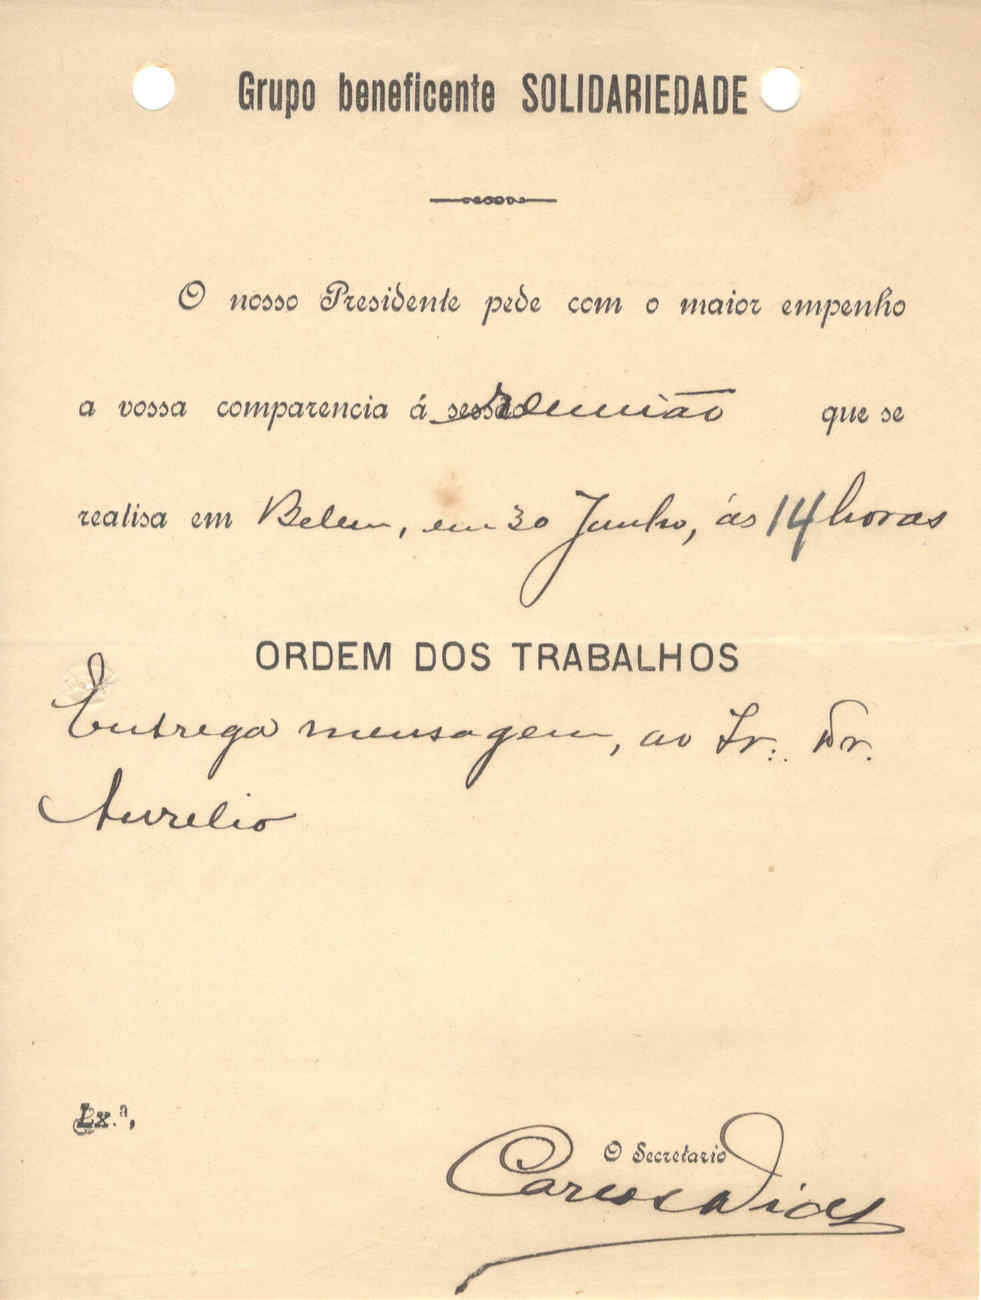 Grupo beneficente SOLIDARIEDADE
O nosso Presidente pede com o maior empenho
a vossa comparencia á sessão reunião que se
realisa em Belem, em 30 Junho, ás 14 horas
ORDEM DOS TRABALHOS
Entrega mensagem, ao Sr. Dr.
Aurelio
Lx.ª,
O Secretario
Carlos Dias